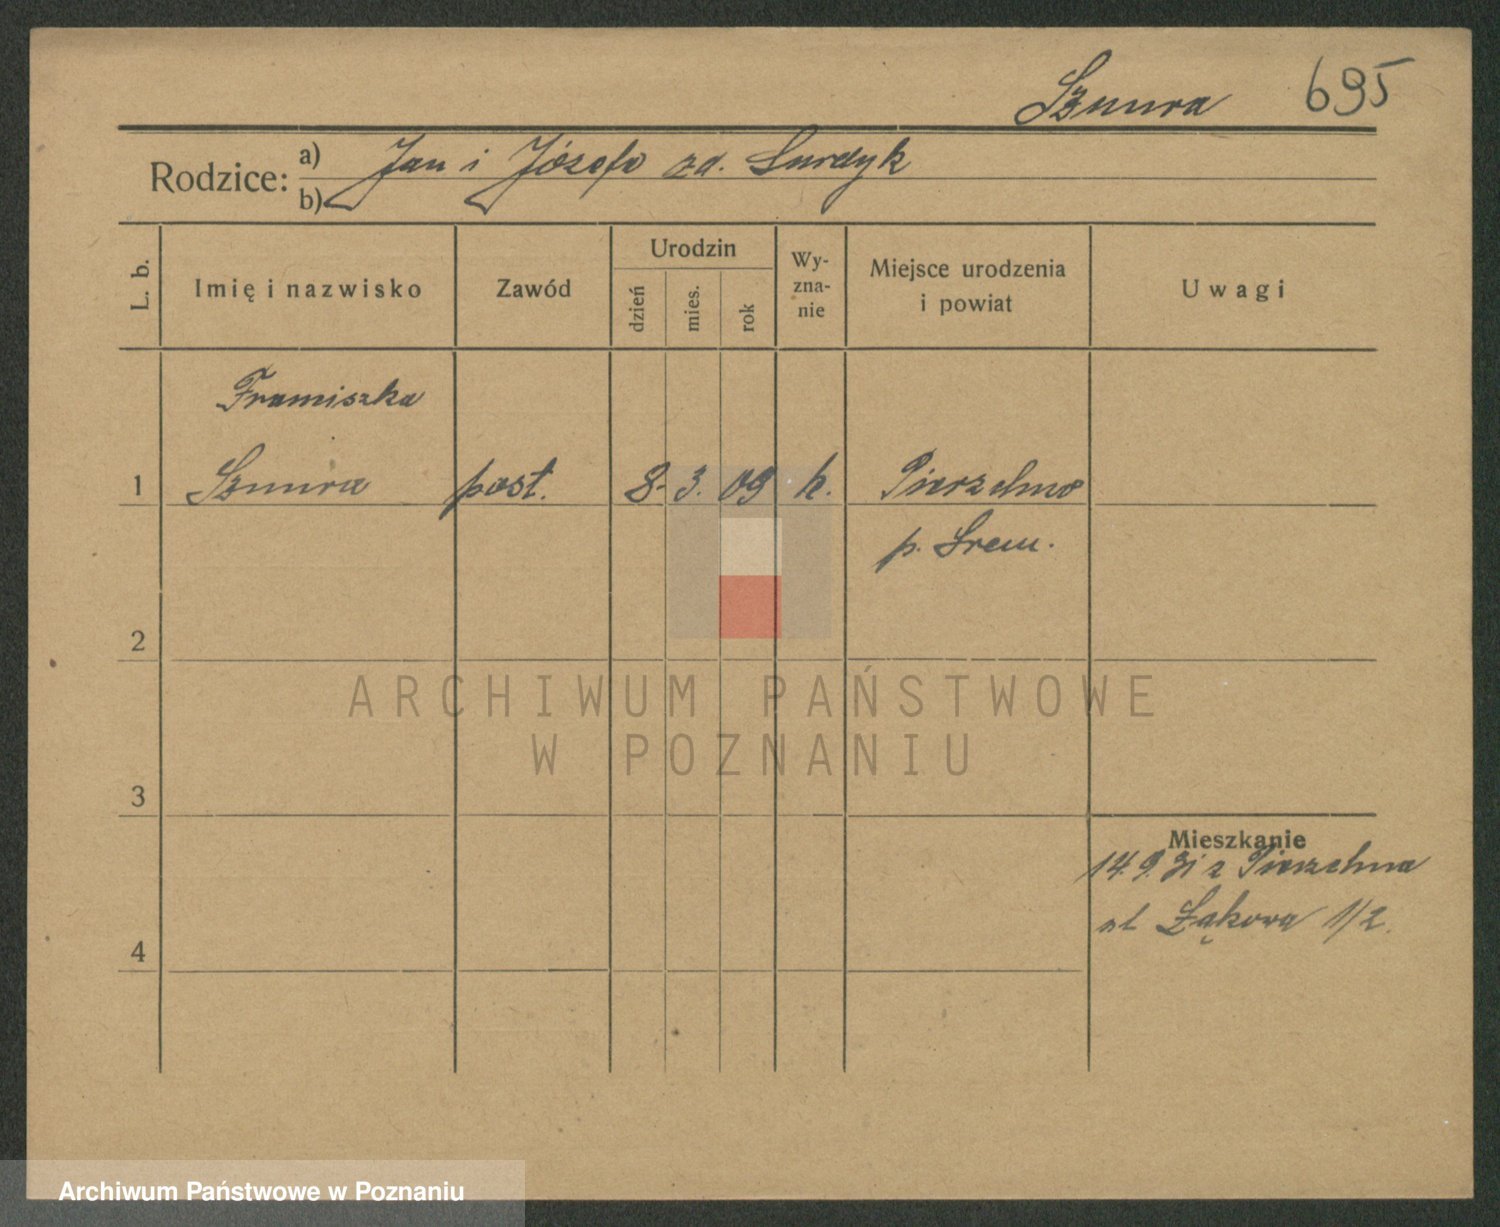 Szmura 695
Rodzice: a) Jan i Józefa zd. Surdyk
b)
L. b.
Imię i nazwisko
Zawód
Urodzin
dzień
mies.
rok
Wy-
zna-
nie
Miejsce urodzenia
i powiat
Uwagi
Franciszka
1 Szmura post. 8. 3. 09 k. Pierzchno
p. Śrem.
2
3
Mieszkanie
14.9.31 z Pierzchna
ul Łąkowa 1/2.
4
ARCHIWUM PAŃSTWOWE
W POZNANIU
Archiwum Państwowe w Poznaniu